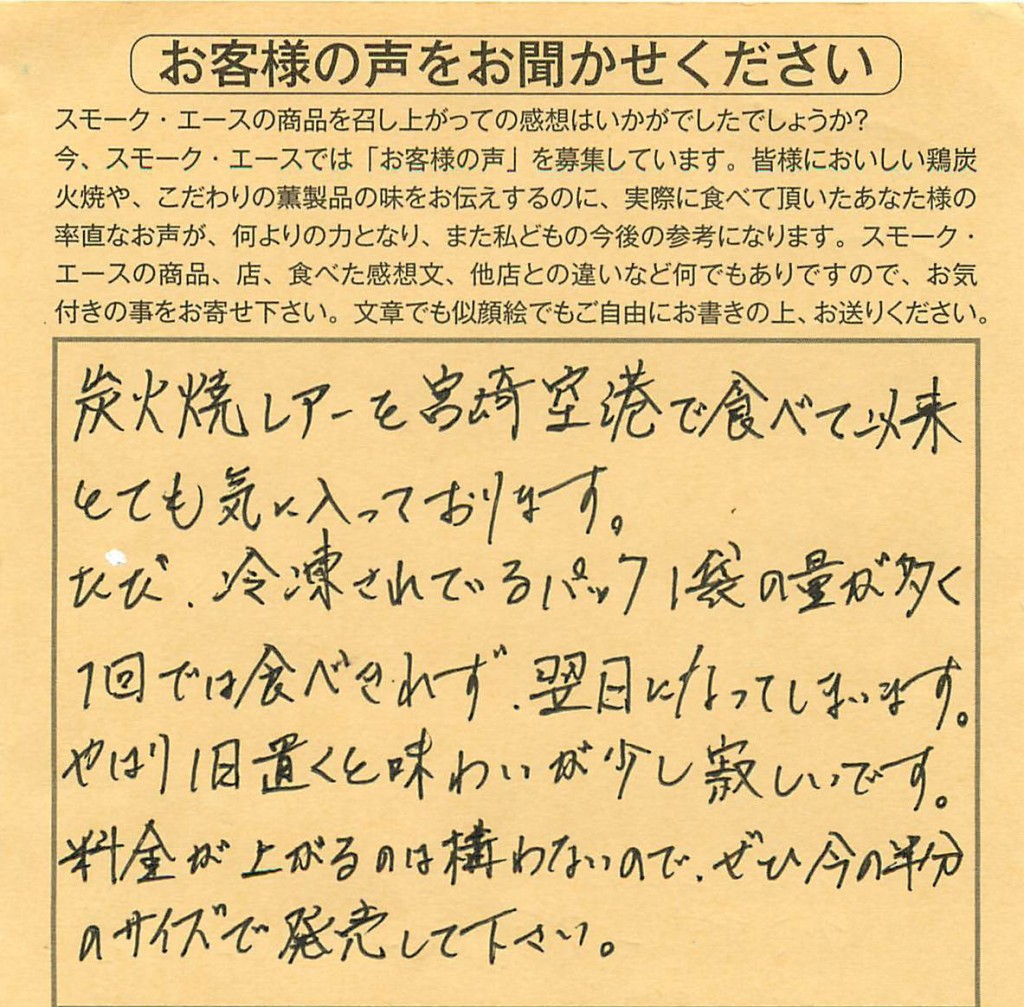 お客様の声をお聞かせください
スモーク・エースの商品を召し上がっての感想はいかがでしたでしょうか?
今、スモーク・エースでは「お客様の声」を募集しています。皆様においしい鶏炭
火焼や、こだわりの薫製品の味をお伝えするのに、実際に食べて頂いたあなた様の
率直なお声が、何よりの力となり、また私どもの今後の参考になります。スモーク・
エースの商品、店、食べた感想文、他店との違いなど何でもありですので、お気
付きの事をお寄せ下さい。文章でも似顔絵でもご自由にお書きの上、お送りください。
炭火焼レアーを宮崎空港で食べて以来
とても気に入っております。
ただ、冷凍されでるパック1袋の量が多く
1回では食べきれず、翌日になってしまいます。
やはり1日置くと味わいが少し寂しいです。
料金が上がるのは構わないので、ぜひ今の半分
のサイズで発売して下さい。